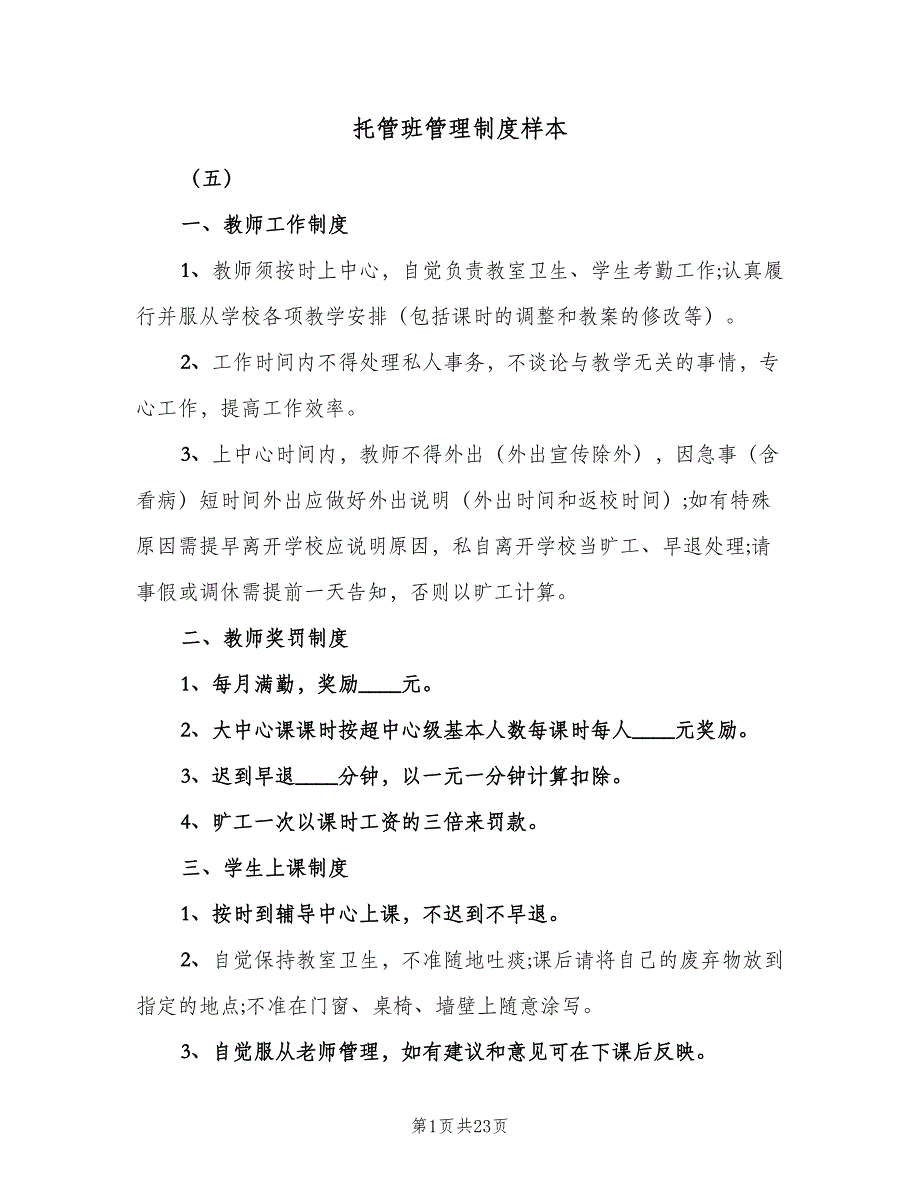 托管班管理制度样本
（五）
一、教师工作制度
1、教师须按时上中心，自觉负责教室卫生、学生考勤工作;认真履
行并服从学校各项教学安排（包括课时的调整和教案的修改等）。
2、工作时间内不得处理私人事务，不谈论与教学无关的事情，专
心工作，提高工作效率。
3、上中心时间内，教师不得外出（外出宣传除外），因急事（含
看病）短时间外出应做好外出说明（外出时间和返校时间）;如有特殊
原因需提早离开学校应说明原因，私自离开学校当旷工、早退处理;请
事假或调休需提前一天告知，否则以旷工计算。
二、教师奖罚制度
1、每月满勤，奖励____元。
2、大中心课课时按超中心级基本人数每课时每人____元奖励。
3、迟到早退____分钟，以一元一分钟计算扣除。
4、旷工一次以课时工资的三倍来罚款。
三、学生上课制度
1、按时到辅导中心上课，不迟到不早退。
2、自觉保持教室卫生，不准随地吐痰;课后请将自己的废弃物放到
指定的地点;不准在门窗、桌椅、墙壁上随意涂写。
3、自觉服从老师管理，如有建议和意见可在下课后反映。
第1页共23页